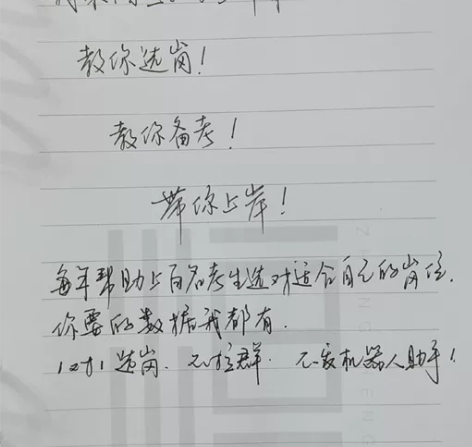 教你选岗！
教你备考！
带你上岸！
每年帮助上百名考生选对适合自己的岗位.
你要的数据我都有.
1对1选岗. 不拉群. 不发机器人助手！